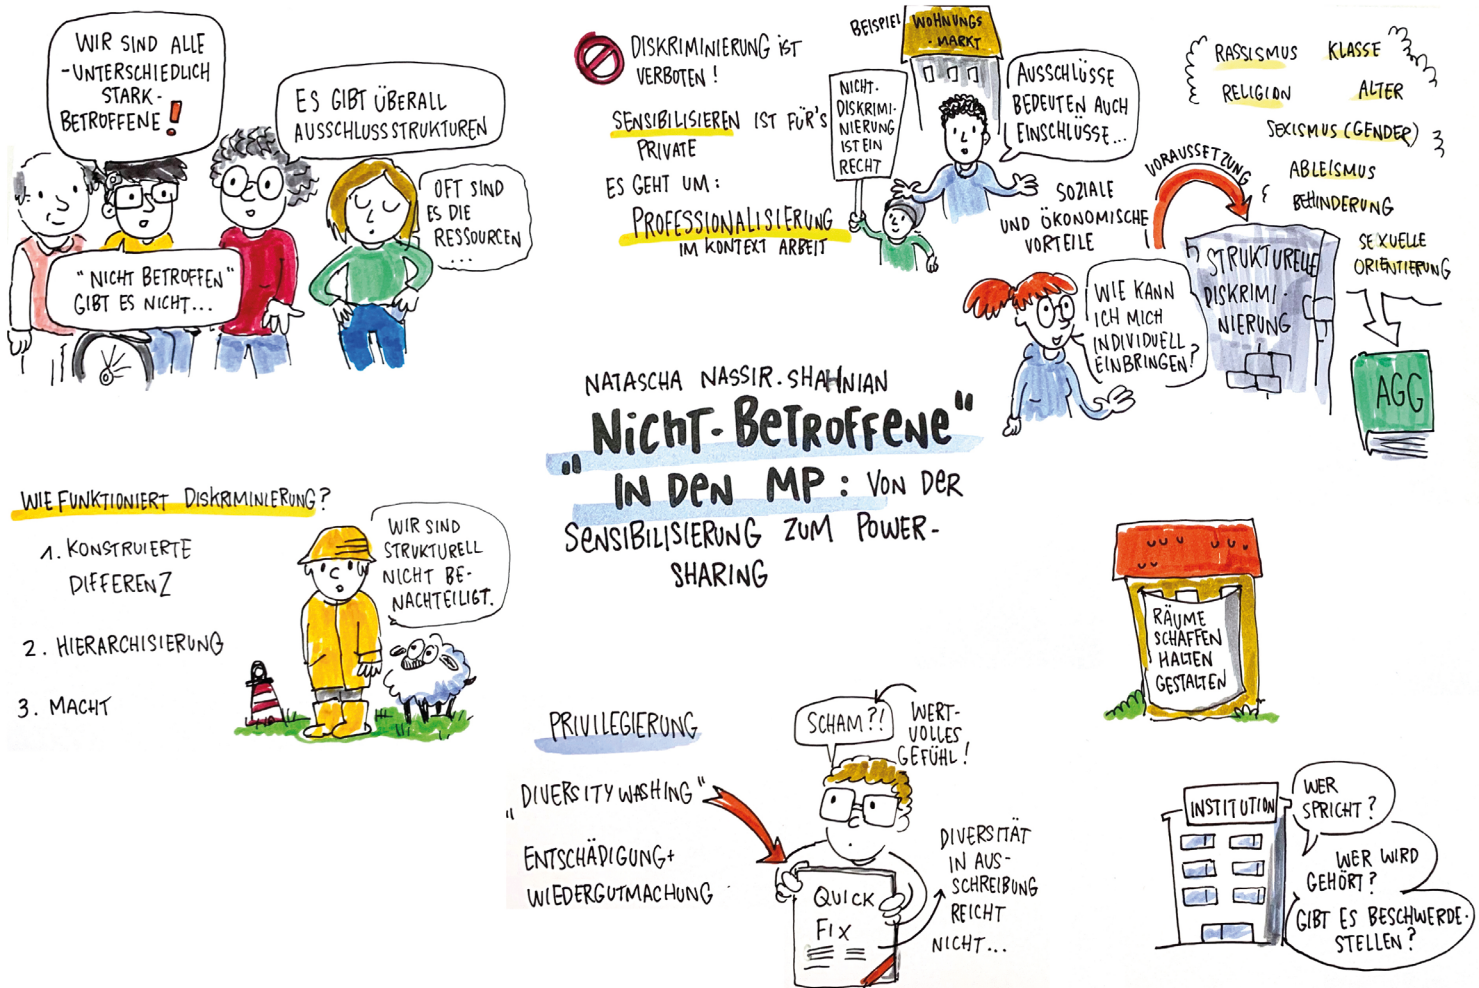 WIR SIND ALLE
-UNTERSCHIEDLICH
STARK-
BETROFFENE!
ES GIBT ÜBERALL
AUSSCHLUSSSTRUKTUREN
OFT SIND
ES DIE
RESSOURCEN
...
"NICHT BETROFFEN"
GIBT ES NICHT...
DISKRIMINIERUNG IST
VERBOTEN!
SENSIBILISIEREN IST FÜR'S
PRIVATE
ES GEHT UM:
PROFESSIONALISIERUNG
IM KONTEXT ARBEIT
BEISPIEL
WOHNUNGS
-MARKT
NICHT-
DISKRIMI-
NIERUNG
IST EIN
RECHT
AUSSCHLÜSSE
BEDEUTEN AUCH
EINSCHLÜSSE...
SOZIALE
UND ÖKONOMISCHE
VORTEILE
VORAUSSETZUNG
RASSISMUS KLASSE
RELIGION ALTER
SEXISMUS (GENDER)
ABLEISMUS
BEHINDERUNG
SEXUELLE
ORIENTIERUNG
STRUKTURELLE
DISKRIMI-
NIERUNG
WIE KANN
ICH MICH
INDIVIDUELL
EINBRINGEN?
AGG
NATASCHA NASSIR-SHAHNIAN
„NICHT-BETROFFENE"
IN DEN MP: VON DER
SENSIBILISIERUNG ZUM POWER-
SHARING
WIE FUNKTIONIERT DISKRIMINIERUNG?
1. KONSTRUIERTE
DIFFERENZ
2. HIERARCHISIERUNG
3. MACHT
WIR SIND
STRUKTURELL
NICHT BE-
NACHTEILIGT.
PRIVILEGIERUNG
„DIVERSITYWASHING"
ENTSCHÄDIGUNG+
WIEDERGUTMACHUNG
SCHAM?!
WERT-
VOLLES
GEFÜHL!
QUICK
FIX
DIVERSITÄT
IN AUS-
SCHREIBUNG
REICHT
NICHT...
RÄUME
SCHAFFEN
HALTEN
GESTALTEN
INSTITUTION
WER
SPRICHT?
WER WIRD
GEHÖRT?
GIBT ES BESCHWERDE-
STELLEN?